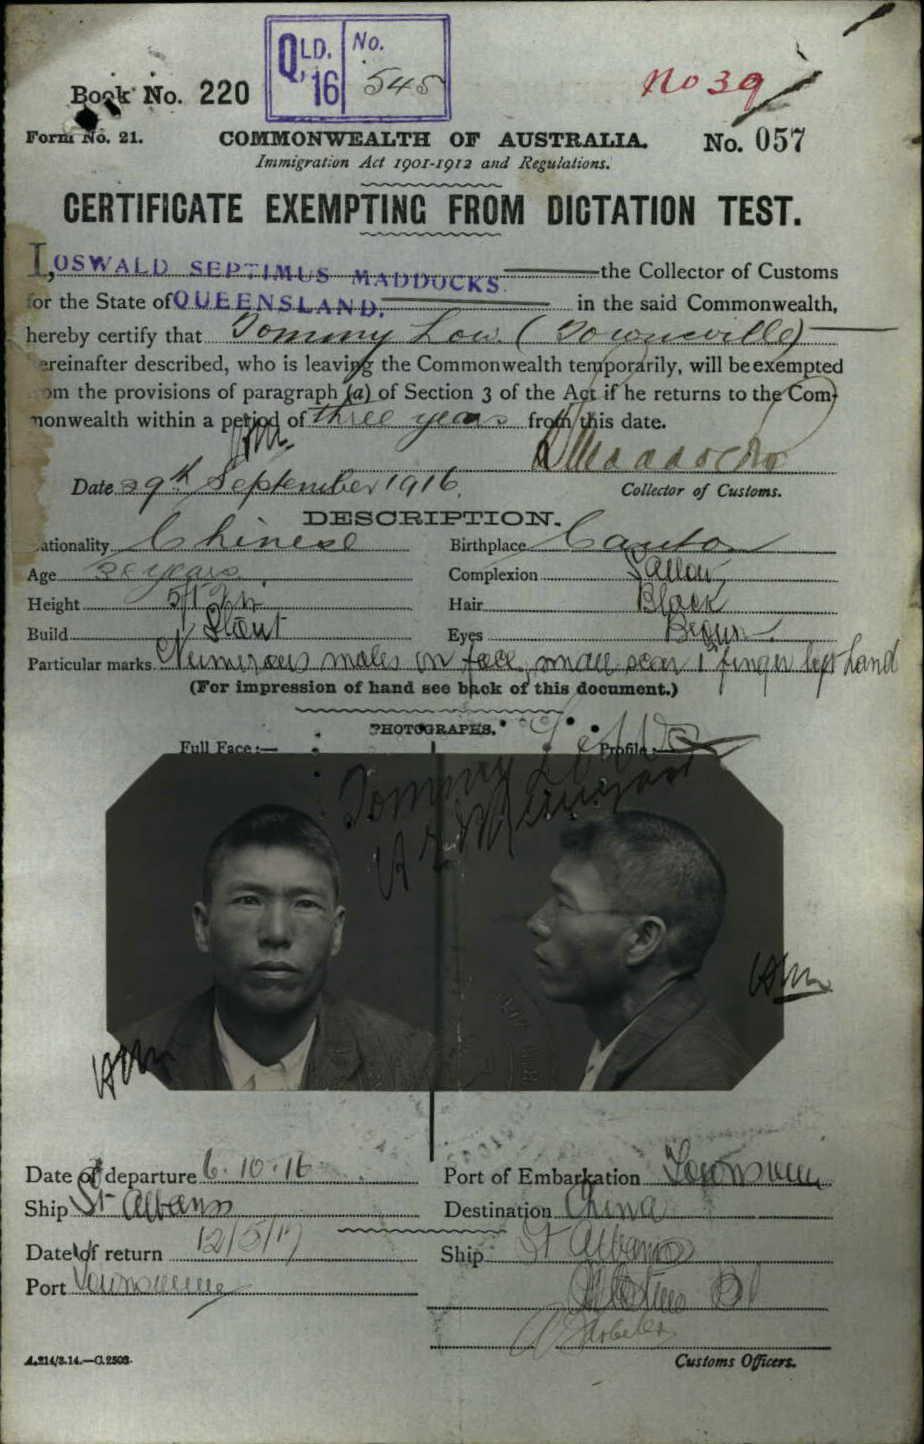 QLD. No.
'16 545
Book No. 220
No 39
Form No. 21. COMMONWEALTH OF AUSTRALIA. No. 057
Immigration Act 1901-1912 and Regulations.
CERTIFICATE EXEMPTING FROM DICTATION TEST.
I, OSWALD SEPTIMUS MADDOCKS the Collector of Customs
for the State of QUEENSLAND. in the said Commonwealth,
hereby certify that Tommy Low (Townsville)
ereinafter described, who is leaving the Commonwealth temporarily, will be exempted
om the provisions of paragraph (a) of Section 3 of the Act if he returns to the Com-
monwealth within a period of three years from this date.
Maddocks
Date 29th September 1916. Collector of Customs.
DESCRIPTION.
ationality Chinese Birthplace Canton
Age years Complexion Sallow
Height Hair Black
Build Stout Eyes Brown
Particular marks Numerous moles on face, small scar 1st finger left hand
(For impression of hand see back of this document.)
PHOTOGRAPHS.
Full Face:— Profile:—
Tommy
Date of departure 6.10.16 Port of Embarkation Townsville
Ship St Albans Destination China
Date of return 12/5/17 Ship St Albans
Port Townsville
A.214/3.14.—C.2503. Customs Officers.